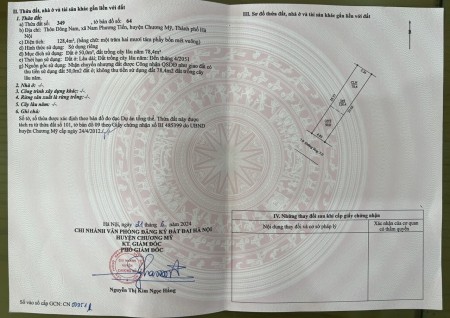 II. Thửa đất, nhà ở và tài sản khác gắn liền với đất
1. Thửa đất:
a) Thửa đất số: 349 , tờ bản đồ số: 64
b) Địa chỉ: Thôn Đồng Nam, xã Nam Phương Tiến, huyện Chương Mỹ, Thành phố Hà
Nội
c) Diện tích: 128,4m², (bằng chữ: một trăm hai mươi tám phẩy bốn mét vuông)
d) Hình thức sử dụng: Sử dụng riêng
đ) Mục đích sử dụng: Đất ở 50,0m², Đất trồng cây lâu năm 78,4m²
e) Thời hạn sử dụng: Đất ở: Lâu dài; Đất trồng cây lâu năm: Đến tháng 4/2031
g) Nguồn gốc sử dụng: Nhận chuyển nhượng đất được Công nhận QSDĐ như giao đất có
thu tiền sử dụng đất 50,0m² đất ở; không thu tiền sử dụng đất 78,4m² đất trồng cây
lâu năm.
2. Nhà ở: -/-
3. Công trình xây dựng khác: -/-
4. Rừng sản xuất là rừng trồng: -/-
5. Cây lâu năm: -/-
6. Ghi chú:
Số tờ, số thửa được xác định theo bản đồ đo đạc Dự án tổng thể. Thửa đất này được
tách ra từ thửa đất số 101, tờ bản đồ 09 theo Giấy chứng nhận số BI 485399 do UBND
huyện Chương Mỹ cấp ngày 24/4/2012.
Hà Nội, ngày 21 tháng 6 năm 2024
CHI NHÁNH VĂN PHÒNG ĐĂNG KÝ ĐẤT ĐAI HÀ NỘI
HUYỆN CHƯƠNG MỸ
KT. GIÁM ĐỐC
PHÓ GIÁM ĐỐC
Nguyễn Thị Kim Ngọc Hồng
Số vào sổ cấp GCN: CN
III. Sơ đồ thửa đất, nhà ở và tài sản khác gắn liền với đất
IV. Những thay đổi sau khi cấp giấy chứng nhận
Nội dung thay đổi và cơ sở pháp lý
Xác nhận của cơ quan
có thẩm quyền